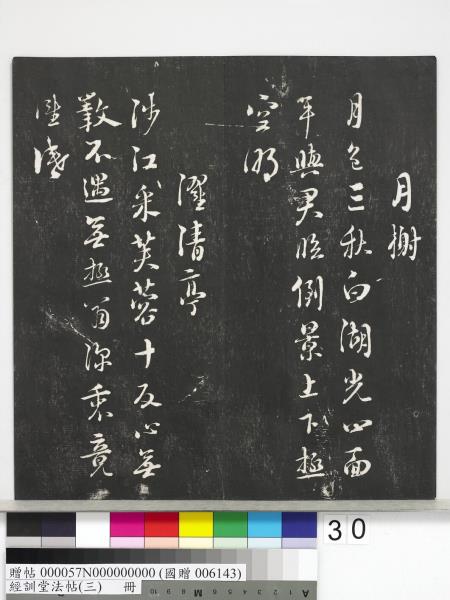 月榭
月色三秋白湖光四面
平與君臨倒景上下極
空明
濯清亭
涉江采芙蓉十反心無
斁不遇無極翁深衷竟
誰識
30
贈帖 000057N000000000 (國贈 006143)
經訓堂法帖(三) 冊